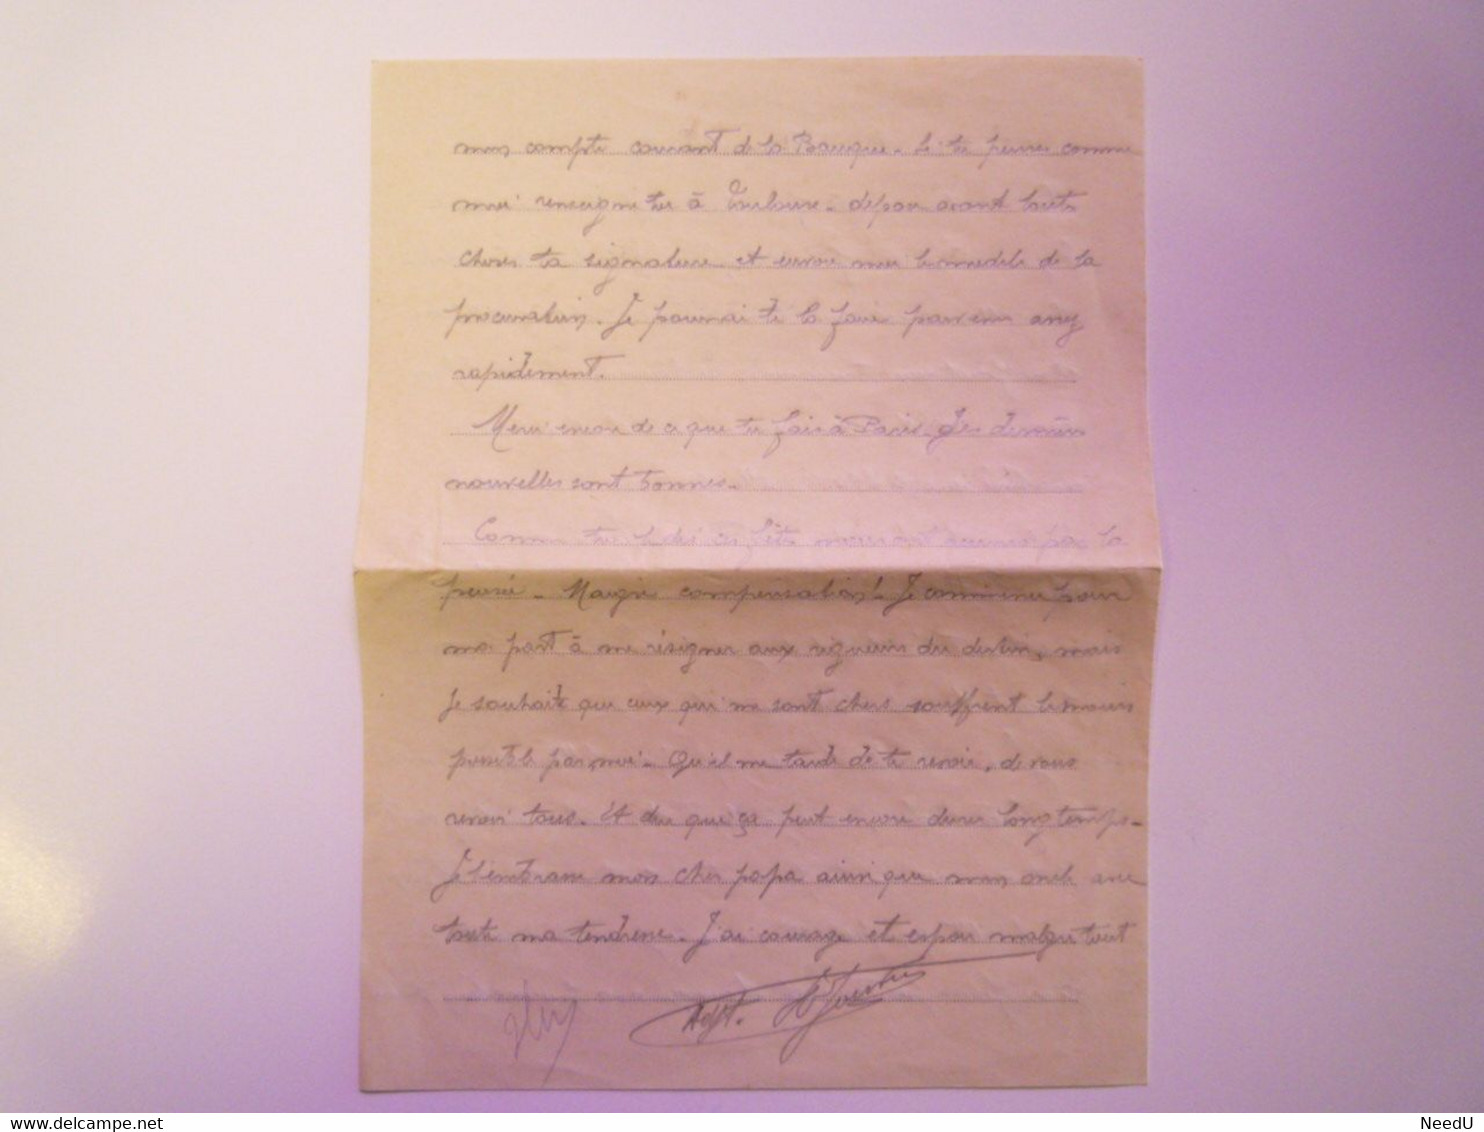 mon compte courant de la Banque. Si tu penses comme
moi renseigne toi à Toulouse. dépose avant toute
choses ta signature et envoie moi le modèle de la
procuration. Je pourrai te la faire parvenir assez
rapidement.
Merci encore de ce que tu fais à Paris. Les dernières
nouvelles sont bonnes.
Comme tu le dis ces fêtes nous ont réunis par la
pensée. Maigre compensation! Je commence pour
ma part à me résigner aux rigueurs du destin, mais
je souhaite que ceux qui me sont chers souffrent le moins
possible par moi. Qu'il me tarde de te revoir, de vous
revoir tous. Et dire que ça peut encore durer longtemps.
Je t'embrasse mon cher papa ainsi que mon oncle avec
toute ma tendresse. J'ai courage et espoir malgré tout
Adjt.
NeedU
delcampe.net